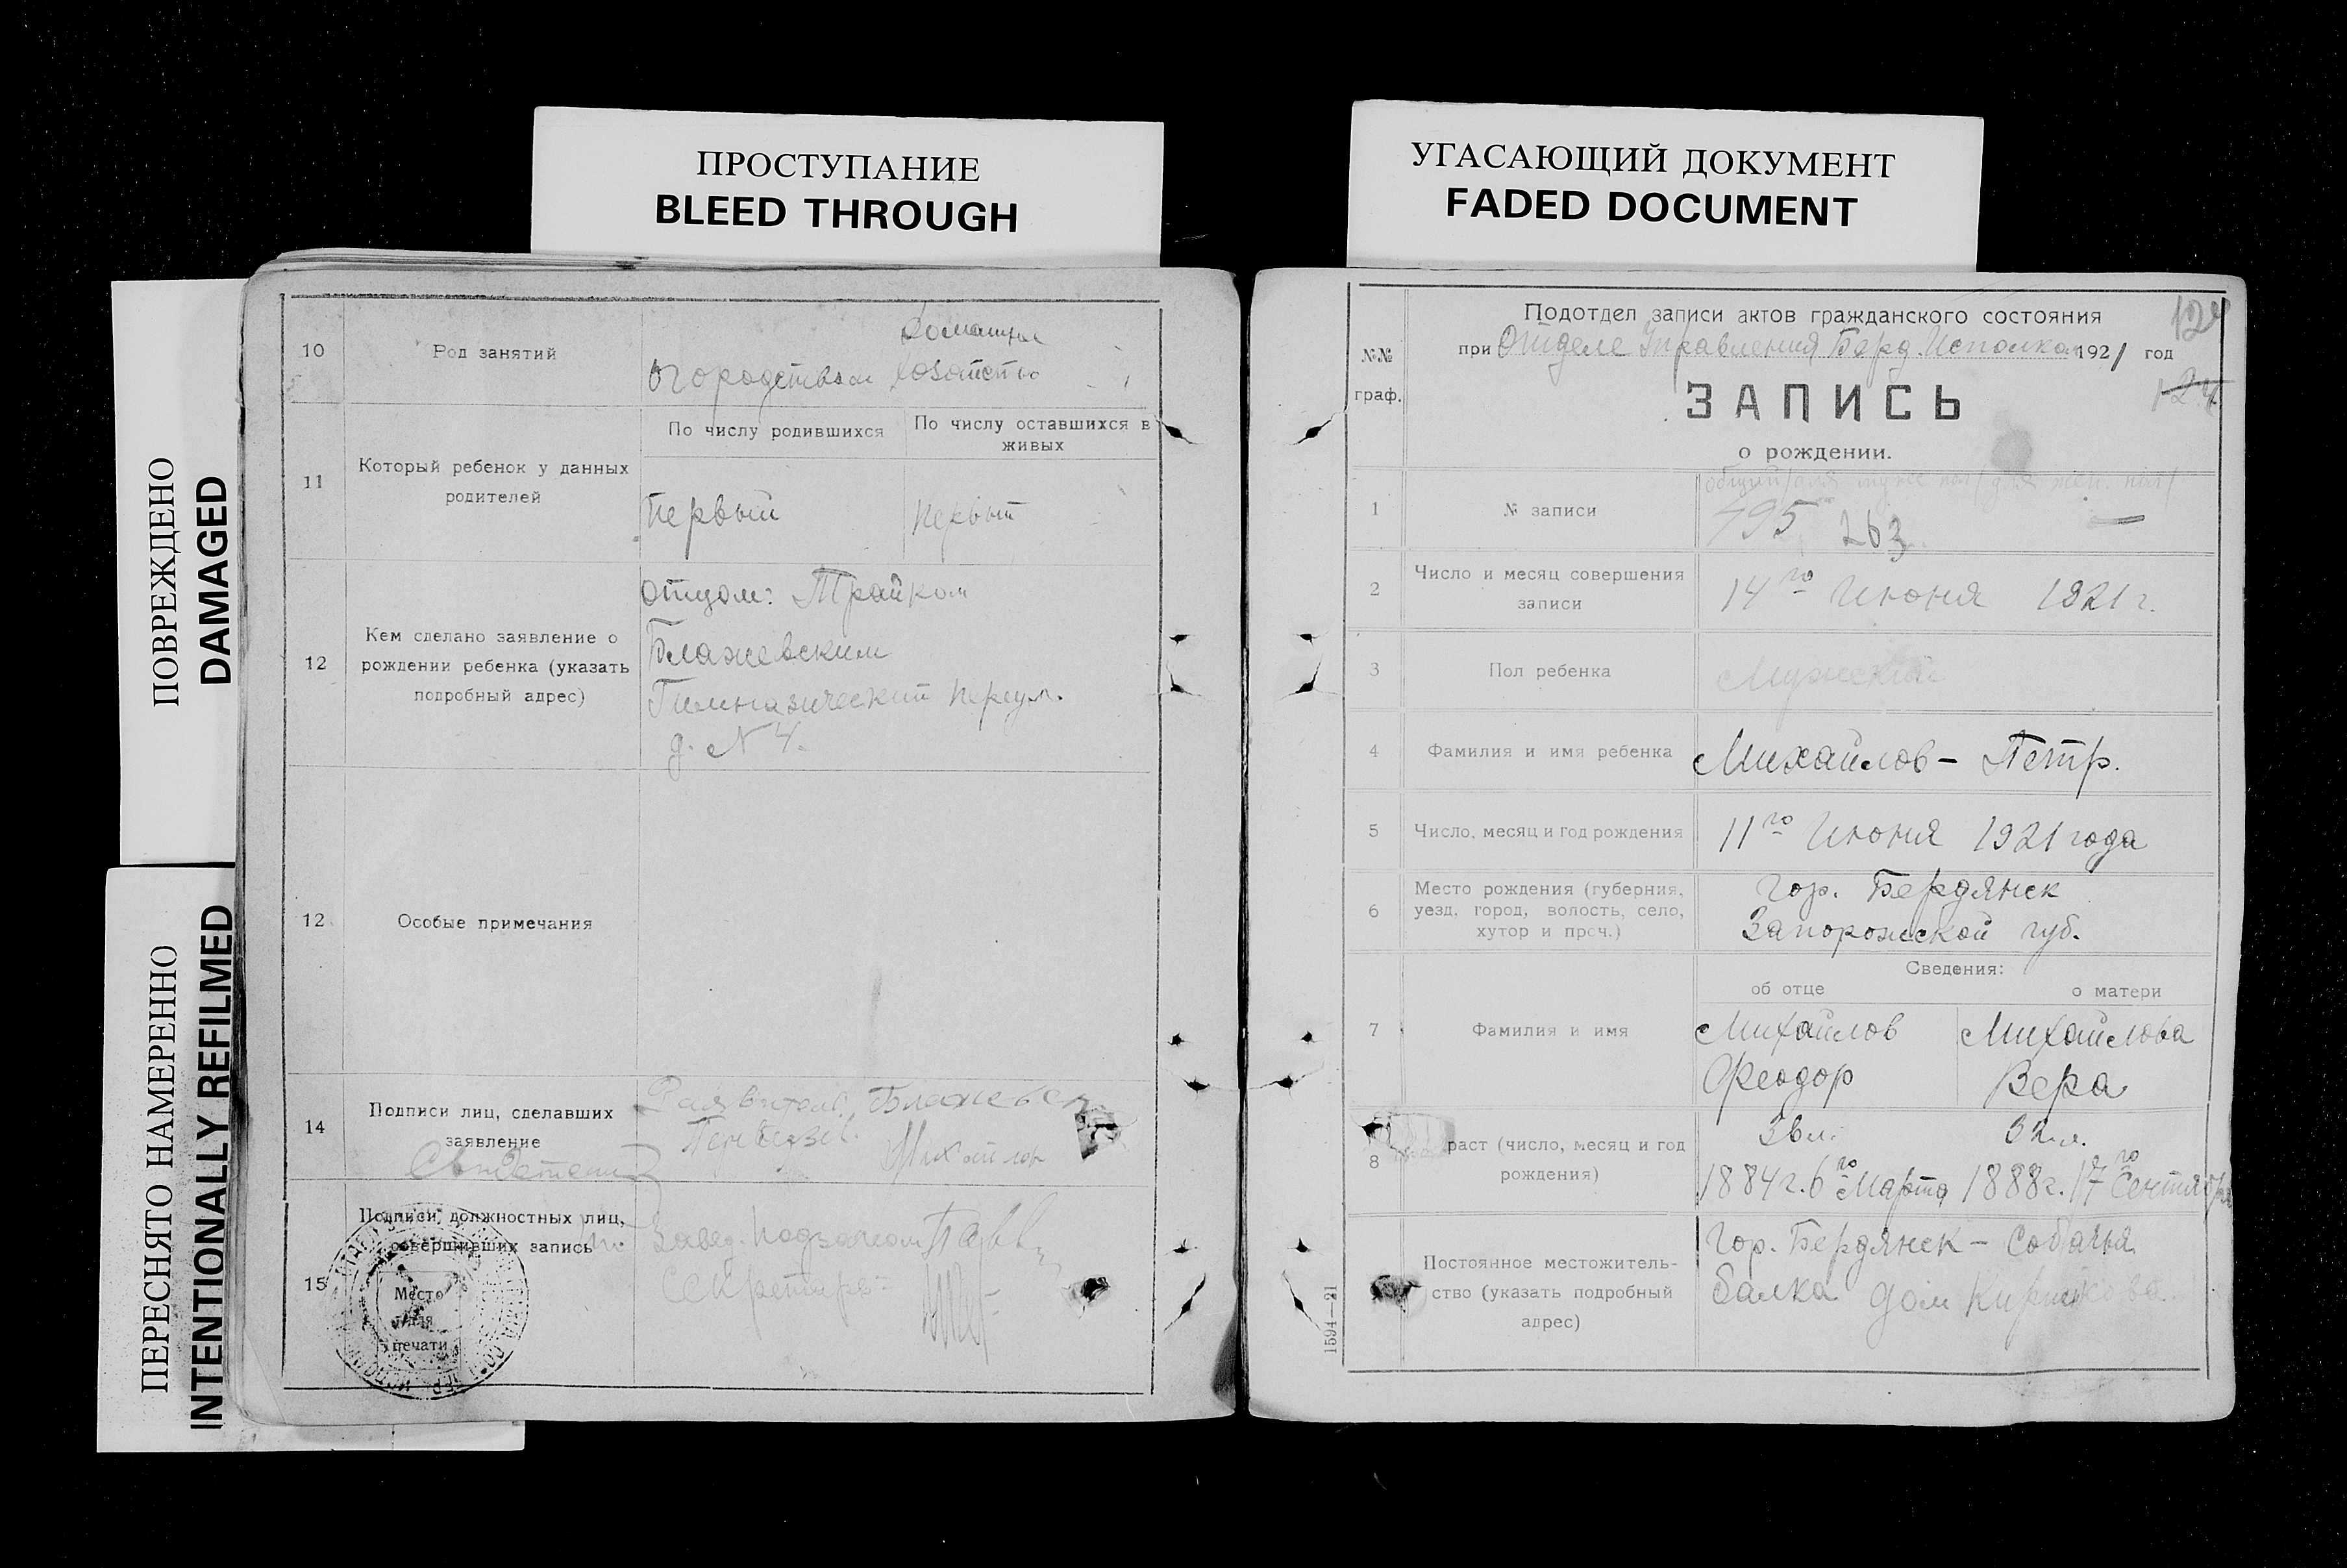 ПРОСТУПАНИЕ
BLEED THROUGH
УГАСАЮЩИЙ ДОКУМЕНТ
FADED DOCUMENT
ПОВРЕЖДЕНО
DAMAGED
ПЕРЕСНЯТО НАМЕРЕННО
INTENTIONALLY REFILMED
10
Род занятий
огородством
хозяйство
11
Который ребенок у данных
родителей
По числу родившихся
По числу оставшихся в
живых
Первый
Первый
12
Кем сделано заявление о
рождении ребенка (указать
подробный адрес)
Отцом: Трайком
Блажевским
Гимназический переул.
д. № 4.
12
Особые примечания
14
Подписи лиц, сделавших
заявление
Михайлов
15
Подписи должностных лиц,
совершивших запись
Место
для
печати
Завед. подзагсом
Секретарь
№№
граф.
Подотдел записи актов гражданского состояния
при Отделе Управления Берд. Исполком 1921 год
124
ЗАПИСЬ
о рождении.
1
№ записи
495 263 —
2
Число и месяц совершения
записи
14го Июня 1921 г.
3
Пол ребенка
Мужской
4
Фамилия и имя ребенка
Михайлов – Петр.
5
Число, месяц и год рождения
11го Июня 1921 года
6
Место рождения (губерния,
уезд, город, волость, село,
хутор и проч.)
Гор. Бердянск
Запорожской губ.
Сведения:
об отце
о матери
7
Фамилия и имя
Михайлов
Феодор
Михайлова
Вера
8
раст (число, месяц и год
рождения)
1884 г. 6го Марта
32 л.
1888 г. 17го Сентября
Постоянное местожитель-
ство (указать подробный
адрес)
Гор. Бердянск – Собачья
балка дом
1594—21